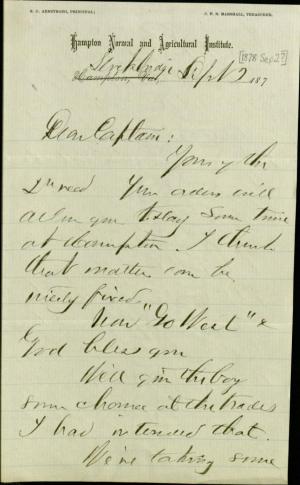 S. C. ARMSTRONG, PRINCIPAL;
J. F. B. MARSHALL, TREASURER.
Hampton Normal and Agricultural Institute.
[1878 Sep 2?]
Stockbridge
Hampton, Va., Sept 2 187
Dear Captain:
Yours of the
2d recd Your orders will
allow you to stay some time
at Hampton. I think
that matter can be
nicely fixed.
Now "Go West" &
God bless you
Will give the boy
some chance at the trades
I had intended that.
We're taking some